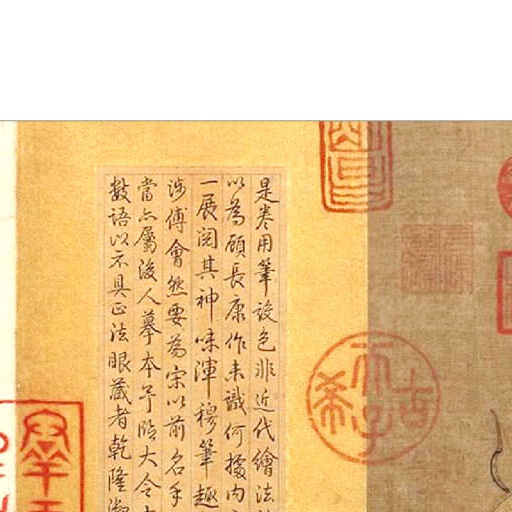 是卷用筆設色非近代繪法
以為顧長康作未識何據內
一展閱其神味渾穆筆趣
涉傅會然要為宋以前名手
當亦屬後人摹本予臨大令
數語以示具正法眼藏者乾隆
古希天子